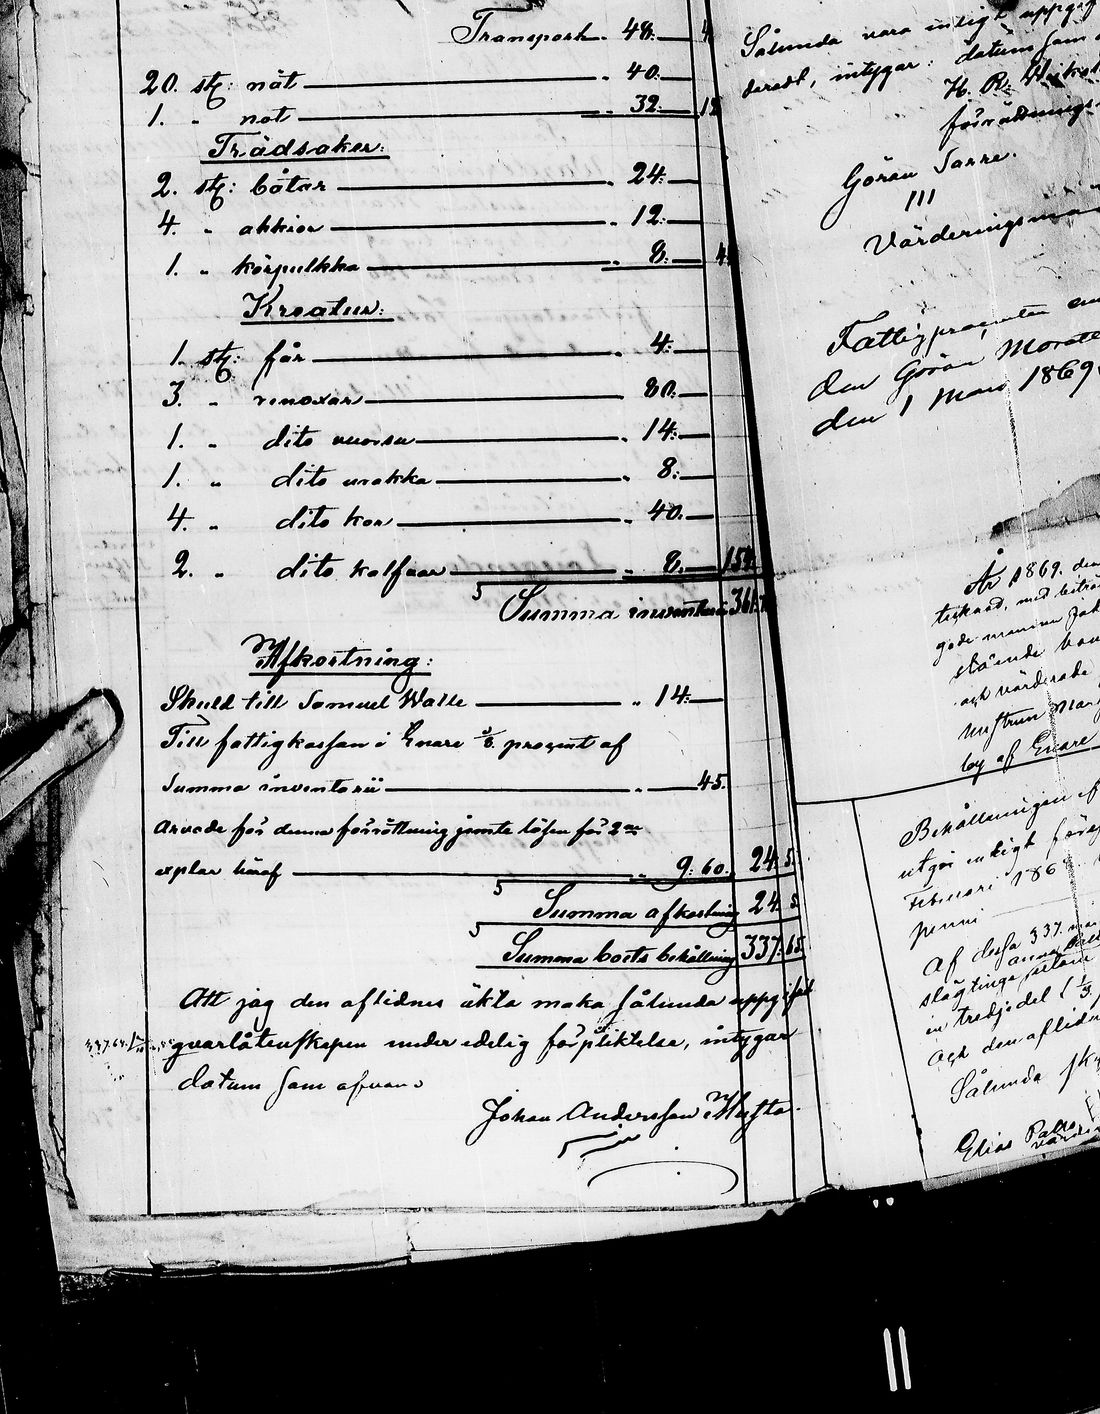 Transport 48. 4
20. st: nät 40.
1. " not 32. 12
Trädsaker:
2. st: båtar 24.
4. " akkior 12.
1. " körpulkka 8. 44
Kreatur:
1. st: får 4.
3. " renoxar 80.
1. " dito vuorsu 14.
1. " dito urakka 8.
4. " dito kor 40.
2. " dito kalfvar 8. 154.
Summa inventarii 361.
Afkortning:
Skuld till Samuel Walle 14.
Till fattigkassan i Enare 1/8 procent af
Summa inventarii 45.
Arvode för denna förrättning jemte lösen för 2ne
explar häraf 9. 60. 24. 5.
Summa afkortning 24. 5
Summa boets behållning 337. 65.
Att jag den aflidnes äkta maka sålunda uppgifvit
qvarlåtenskapen under edelig förpliktelse, intygar
datum som ofvan.
Johan Andersson Matta.
Sålunda vara enligt uppgift
deradt, intygar: datum som
H. R.
förrättnings-
Göran Sarre.
III
Värderingsman
Fattigprocenten
den Göran Morotte
den 1 Mars 1869.
År 1869. den
gode mannen Jak
stående
och värderade
hustrun Mar
by af Enare
Behållningen af
utgör enligt före
Februari 186
penni
Af dessa 337. mar
slägtinge
en tredjedel (1/3
och den aflidn
Sålunda sk
Elias